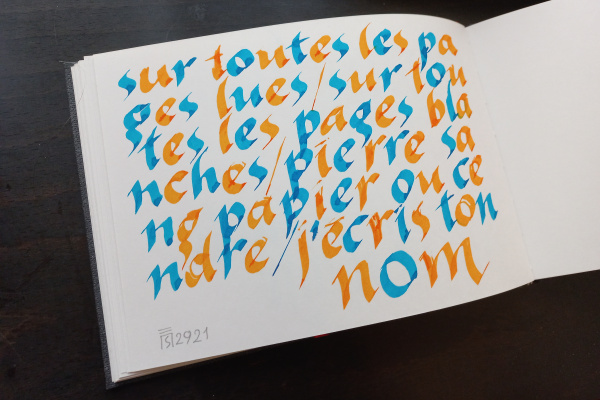 sur toutes les pa
ges lues / sur tou
tes les pages bla
nches / pierre sa
ng papier ou ce
ndre / j'écris ton
nom